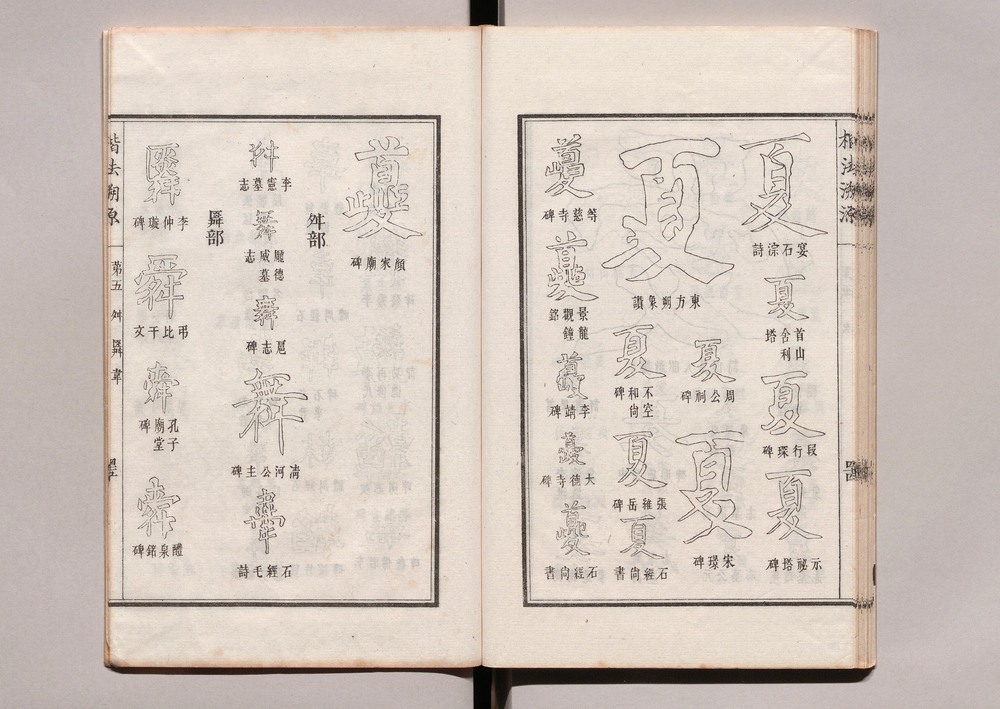 楷法溯源
夏
宴石淙詩
夏
首山舍利塔
夏
段行琛碑
夏
示祕塔碑
夏
東方朔象讚
夏
周公祠碑
夏
宋璟碑
夏
不空和尙碑
夏
張維岳碑
夏
石經尙書
夔
等慈寺碑
夔
景龍觀鐘銘
夔
李靖碑
夔
大德寺碑
夔
石經尙書
夔
顏家廟碑
舛部
舛
李憲墓志
舞
龐德威墓志
舞
志碑
舞
淸河公主碑
舝
石經毛詩
舜部
李仲璇碑
舜
弔比干文
舜
孔子廟堂碑
舜
醴泉銘碑
楷法溯源
第五
舛
舜
韋